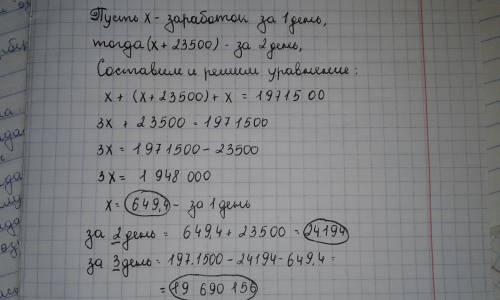 Пусть x - заработок за 1 день,
тогда (x + 23500) - за 2 день,
Составим и решим уравнение:
x + (x + 23500) + x = 1971500
3x + 23500 = 1971500
3x = 1971500 - 23500
3x = 1 948 000
x = 649,4 - за 1 день
за 2 день = 649,4 + 23500 = 24194
за 3 день = 197.1500 - 24194 - 649,4 =
= 19 690 156